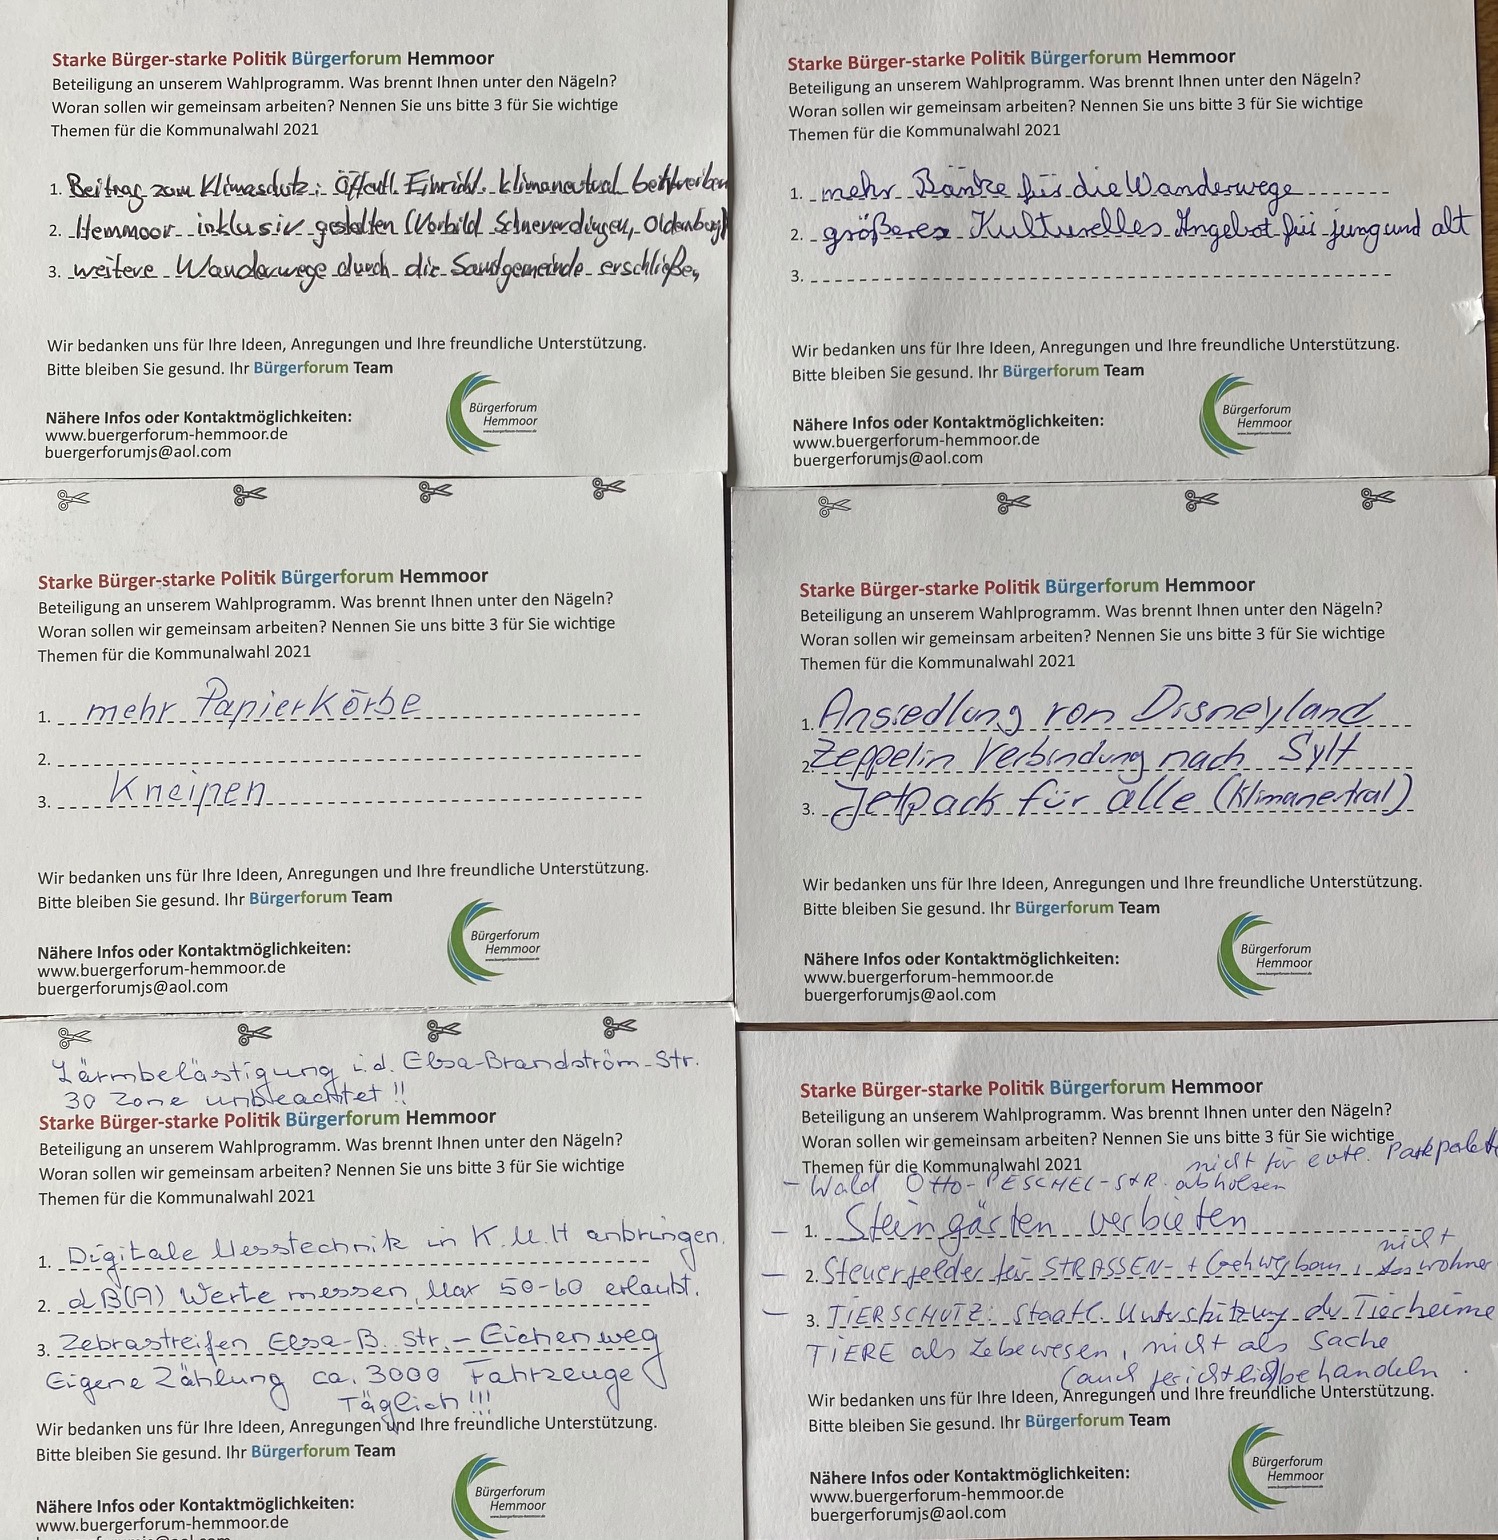 Starke Bürger-starke Politik Bürgerforum Hemmoor
Beteiligung an unserem Wahlprogramm. Was brennt Ihnen unter den Nägeln?
Woran sollen wir gemeinsam arbeiten? Nennen Sie uns bitte 3 für Sie wichtige
Themen für die Kommunalwahl 2021
1. Beitrag zum Klimaschutz: Öffentl. Einricht. klimaneutral
2. Hemmoor inklusiv gestalten (Vorbild Schneverdingen, Oldenburg)
3. weitere Wanderwege durch die Samtgemeinde erschließen
Wir bedanken uns für Ihre Ideen, Anregungen und Ihre freundliche Unterstützung.
Bitte bleiben Sie gesund. Ihr Bürgerforum Team
Bürgerforum
Hemmoor
Nähere Infos oder Kontaktmöglichkeiten:
www.buergerforum-hemmoor.de
buergerforumjs@aol.com
Starke Bürger-starke Politik Bürgerforum Hemmoor
Beteiligung an unserem Wahlprogramm. Was brennt Ihnen unter den Nägeln?
Woran sollen wir gemeinsam arbeiten? Nennen Sie uns bitte 3 für Sie wichtige
Themen für die Kommunalwahl 2021
1. mehr Bänke für die Wanderwege
2. größeres Kulturelles Angebot für jung und alt
3.
Wir bedanken uns für Ihre Ideen, Anregungen und Ihre freundliche Unterstützung.
Bitte bleiben Sie gesund. Ihr Bürgerforum Team
Bürgerforum
Hemmoor
Nähere Infos oder Kontaktmöglichkeiten:
www.buergerforum-hemmoor.de
buergerforumjs@aol.com
Starke Bürger-starke Politik Bürgerforum Hemmoor
Beteiligung an unserem Wahlprogramm. Was brennt Ihnen unter den Nägeln?
Woran sollen wir gemeinsam arbeiten? Nennen Sie uns bitte 3 für Sie wichtige
Themen für die Kommunalwahl 2021
1. mehr Papierkörbe
2.
3. Kneipen
Wir bedanken uns für Ihre Ideen, Anregungen und Ihre freundliche Unterstützung.
Bitte bleiben Sie gesund. Ihr Bürgerforum Team
Bürgerforum
Hemmoor
Nähere Infos oder Kontaktmöglichkeiten:
www.buergerforum-hemmoor.de
buergerforumjs@aol.com
Starke Bürger-starke Politik Bürgerforum Hemmoor
Beteiligung an unserem Wahlprogramm. Was brennt Ihnen unter den Nägeln?
Woran sollen wir gemeinsam arbeiten? Nennen Sie uns bitte 3 für Sie wichtige
Themen für die Kommunalwahl 2021
1. Ansiedlung von Disneyland
2. Zeppelin Verbindung nach Sylt
3. Jetpack für alle (klimanertral)
Wir bedanken uns für Ihre Ideen, Anregungen und Ihre freundliche Unterstützung.
Bitte bleiben Sie gesund. Ihr Bürgerforum Team
Bürgerforum
Hemmoor
Nähere Infos oder Kontaktmöglichkeiten:
www.buergerforum-hemmoor.de
buergerforumjs@aol.com
Lärmbelästigung i.d. Elsa-Brandström-Str.
30 Zone unbeachtet !!
Starke Bürger-starke Politik Bürgerforum Hemmoor
Beteiligung an unserem Wahlprogramm. Was brennt Ihnen unter den Nägeln?
Woran sollen wir gemeinsam arbeiten? Nennen Sie uns bitte 3 für Sie wichtige
Themen für die Kommunalwahl 2021
1. Digitale Messtechnik in K.M.H anbringen.
2. dB(A) Werte messen, Max 50-60 erlaubt.
3. Zebrastreifen Elsa-B. Str. - Eichenweg
Eigene Zählung ca. 3000 Fahrzeuge
Täglich !!!
Wir bedanken uns für Ihre Ideen, Anregungen und Ihre freundliche Unterstützung.
Bitte bleiben Sie gesund. Ihr Bürgerforum Team
Bürgerforum
Hemmoor
Nähere Infos oder Kontaktmöglichkeiten:
www.buergerforum-hemmoor.de
Starke Bürger-starke Politik Bürgerforum Hemmoor
Beteiligung an unserem Wahlprogramm. Was brennt Ihnen unter den Nägeln?
Woran sollen wir gemeinsam arbeiten? Nennen Sie uns bitte 3 für Sie wichtige
Themen für die Kommunalwahl 2021
nicht für evtl. Parkpalette
- Wald Otto-PESCHEL-StR. abholzen
- 1. Steingärten verbieten
nicht
- 2. Steuergelder für STRASSEN- + Gehwegbau,
- 3. TIERSCHUTZ: Staatl. Unterstützung der Tierheime
TIERE als Lebewesen, nicht als Sache
(auch gerichtlich) behandeln.
Wir bedanken uns für Ihre Ideen, Anregungen und Ihre freundliche Unterstützung.
Bitte bleiben Sie gesund. Ihr Bürgerforum Team
Bürgerforum
Hemmoor
Nähere Infos oder Kontaktmöglichkeiten:
www.buergerforum-hemmoor.de
buergerforumjs@aol.com